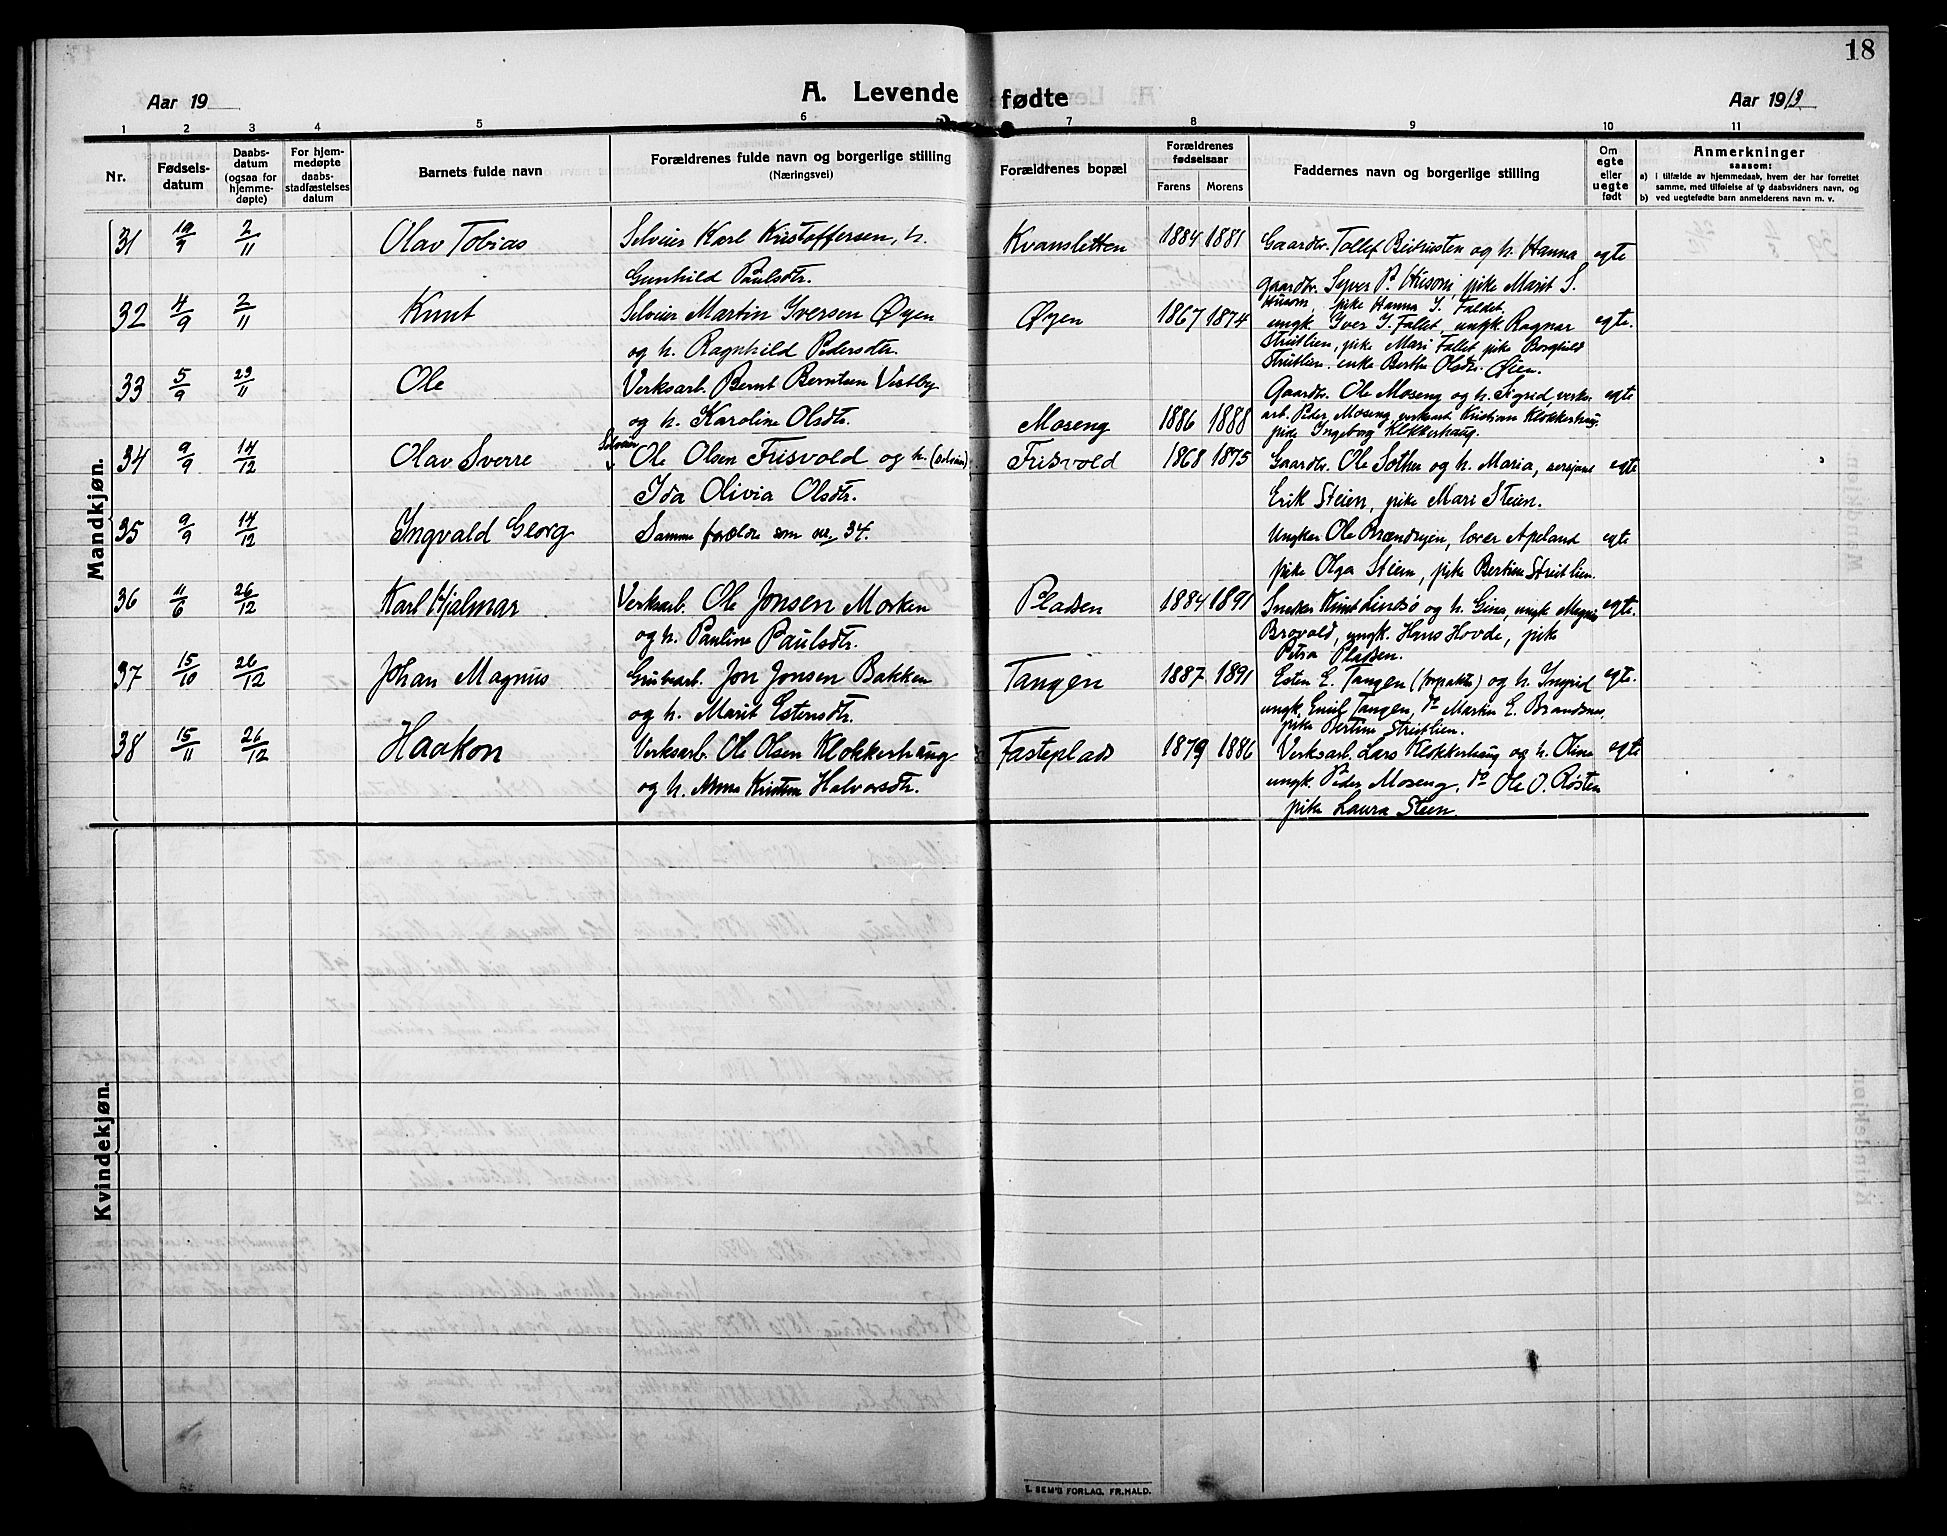 18
Aar 19
A. Levende fødte
Aar 1913
1 2 3 4 5 6 7 8 9 10 11
Nr.
Fødsels-
datum
Daabs-
datum
(ogsaa for
hjemme-
døpte)
For hjem-
medøpte
daabs-
stadfæstelses
datum
Barnets fulde navn
Forældrenes fulde navn og borgerlige stilling
(Næringsvei)
Forældrenes bopæl
Forældrenes
fødselsaar
Farens Morens
Faddernes navn og borgerlige stilling
Om
egte
eller
uegte
født
Anmerkninger
saasom:
a) i tilfælde av hjemmedaab, hvem der har forrettet
samme, med tilføielse af to daabsvidners navn, og
b) ved uegtefødte barn anmelderens navn m. v.
Mandkjøn.
31 10/9 2/11 Olav Tobias Selveier Karl Kristoffersen, h. Kvansletten 1884 1881 Gaardbr. Tollef Beitrusten og h. Hanna egte
Gunhild Paulsdtr. gaardbr. Syver P. Husom, pike Marit S.
Husom, pike Hanna I. Faldet.
32 4/9 2/11 Knut Selveier Martin Iversen Øyen Øyen 1867 1874 ungk. Iver I. Fallet, ungk. Ragnar egte.
og h. Ragnhild Pedersdtr. Streitlien, pike Mari Fallet, pike Borghild
Streitlien. enke Berthe Olsdr. Øien.
33 5/9 23/11 Ole Verksarb. Bernt Berntsen Vestby Gaardbr. Ole Moseng og h. Sigrid, verks- egte
og h. Karoline Olsdtr. Moseng 1886 1888 arb. Peder Moseng, verksarb Kristian Klokkerhaug,
pike Ingeborg Klokkerhaug.
34 9/9 14/12 Olav Sverre Selveier Ole Olsen Frisvold og h. Frisvold 1868 1875 Gaardbr. Ole Sother og h. Maria, sersjant egte
Ida Olivia Olsdtr. Erik Steien, pike Mari Steien.
35 9/9 14/12 Ingvald Georg Samme forældre som nr. 34. Ungkar Ole Brændryen, lærer Apeland egte
pike Olga Steien, pike Bertine Streitlien.
36 11/6 26/12 Karl Hjalmar Verksarb. Ole Jonsen Morken Pladsen 1884 1891 Snekker Knut Lindsø og h. Gina, ungk. Magnus egte.
og h. Pauline Paulsdtr. Brovold, ungk. Hans Hovde, pike
Petra Pladsen.
37 15/10 26/12 Johan Magnus Grubearb. Jon Jonsen Bakken Tangen 1887 1891 Esten E. Tangen (forpakter) og h. Ingrid egte.
og h. Marit Estensdtr. ungk. Emil Tangen, do Martin E. Brandsnes,
pike Bertine Streitlien.
38 15/11 26/12 Haakon Verksarb. Ole Olsen Klokkerhaug Fasteplads 1879 1886 Verksarb. Lars Klokkerhaug og h. Oline egte
og h. Anne Kristine Halvorsdtr. ungk. Peder Moseng, do Ole O. Røsten
pike Laura Steen.
Kvindekjøn.
E. SEM'S FORLAG, FR.HALD.